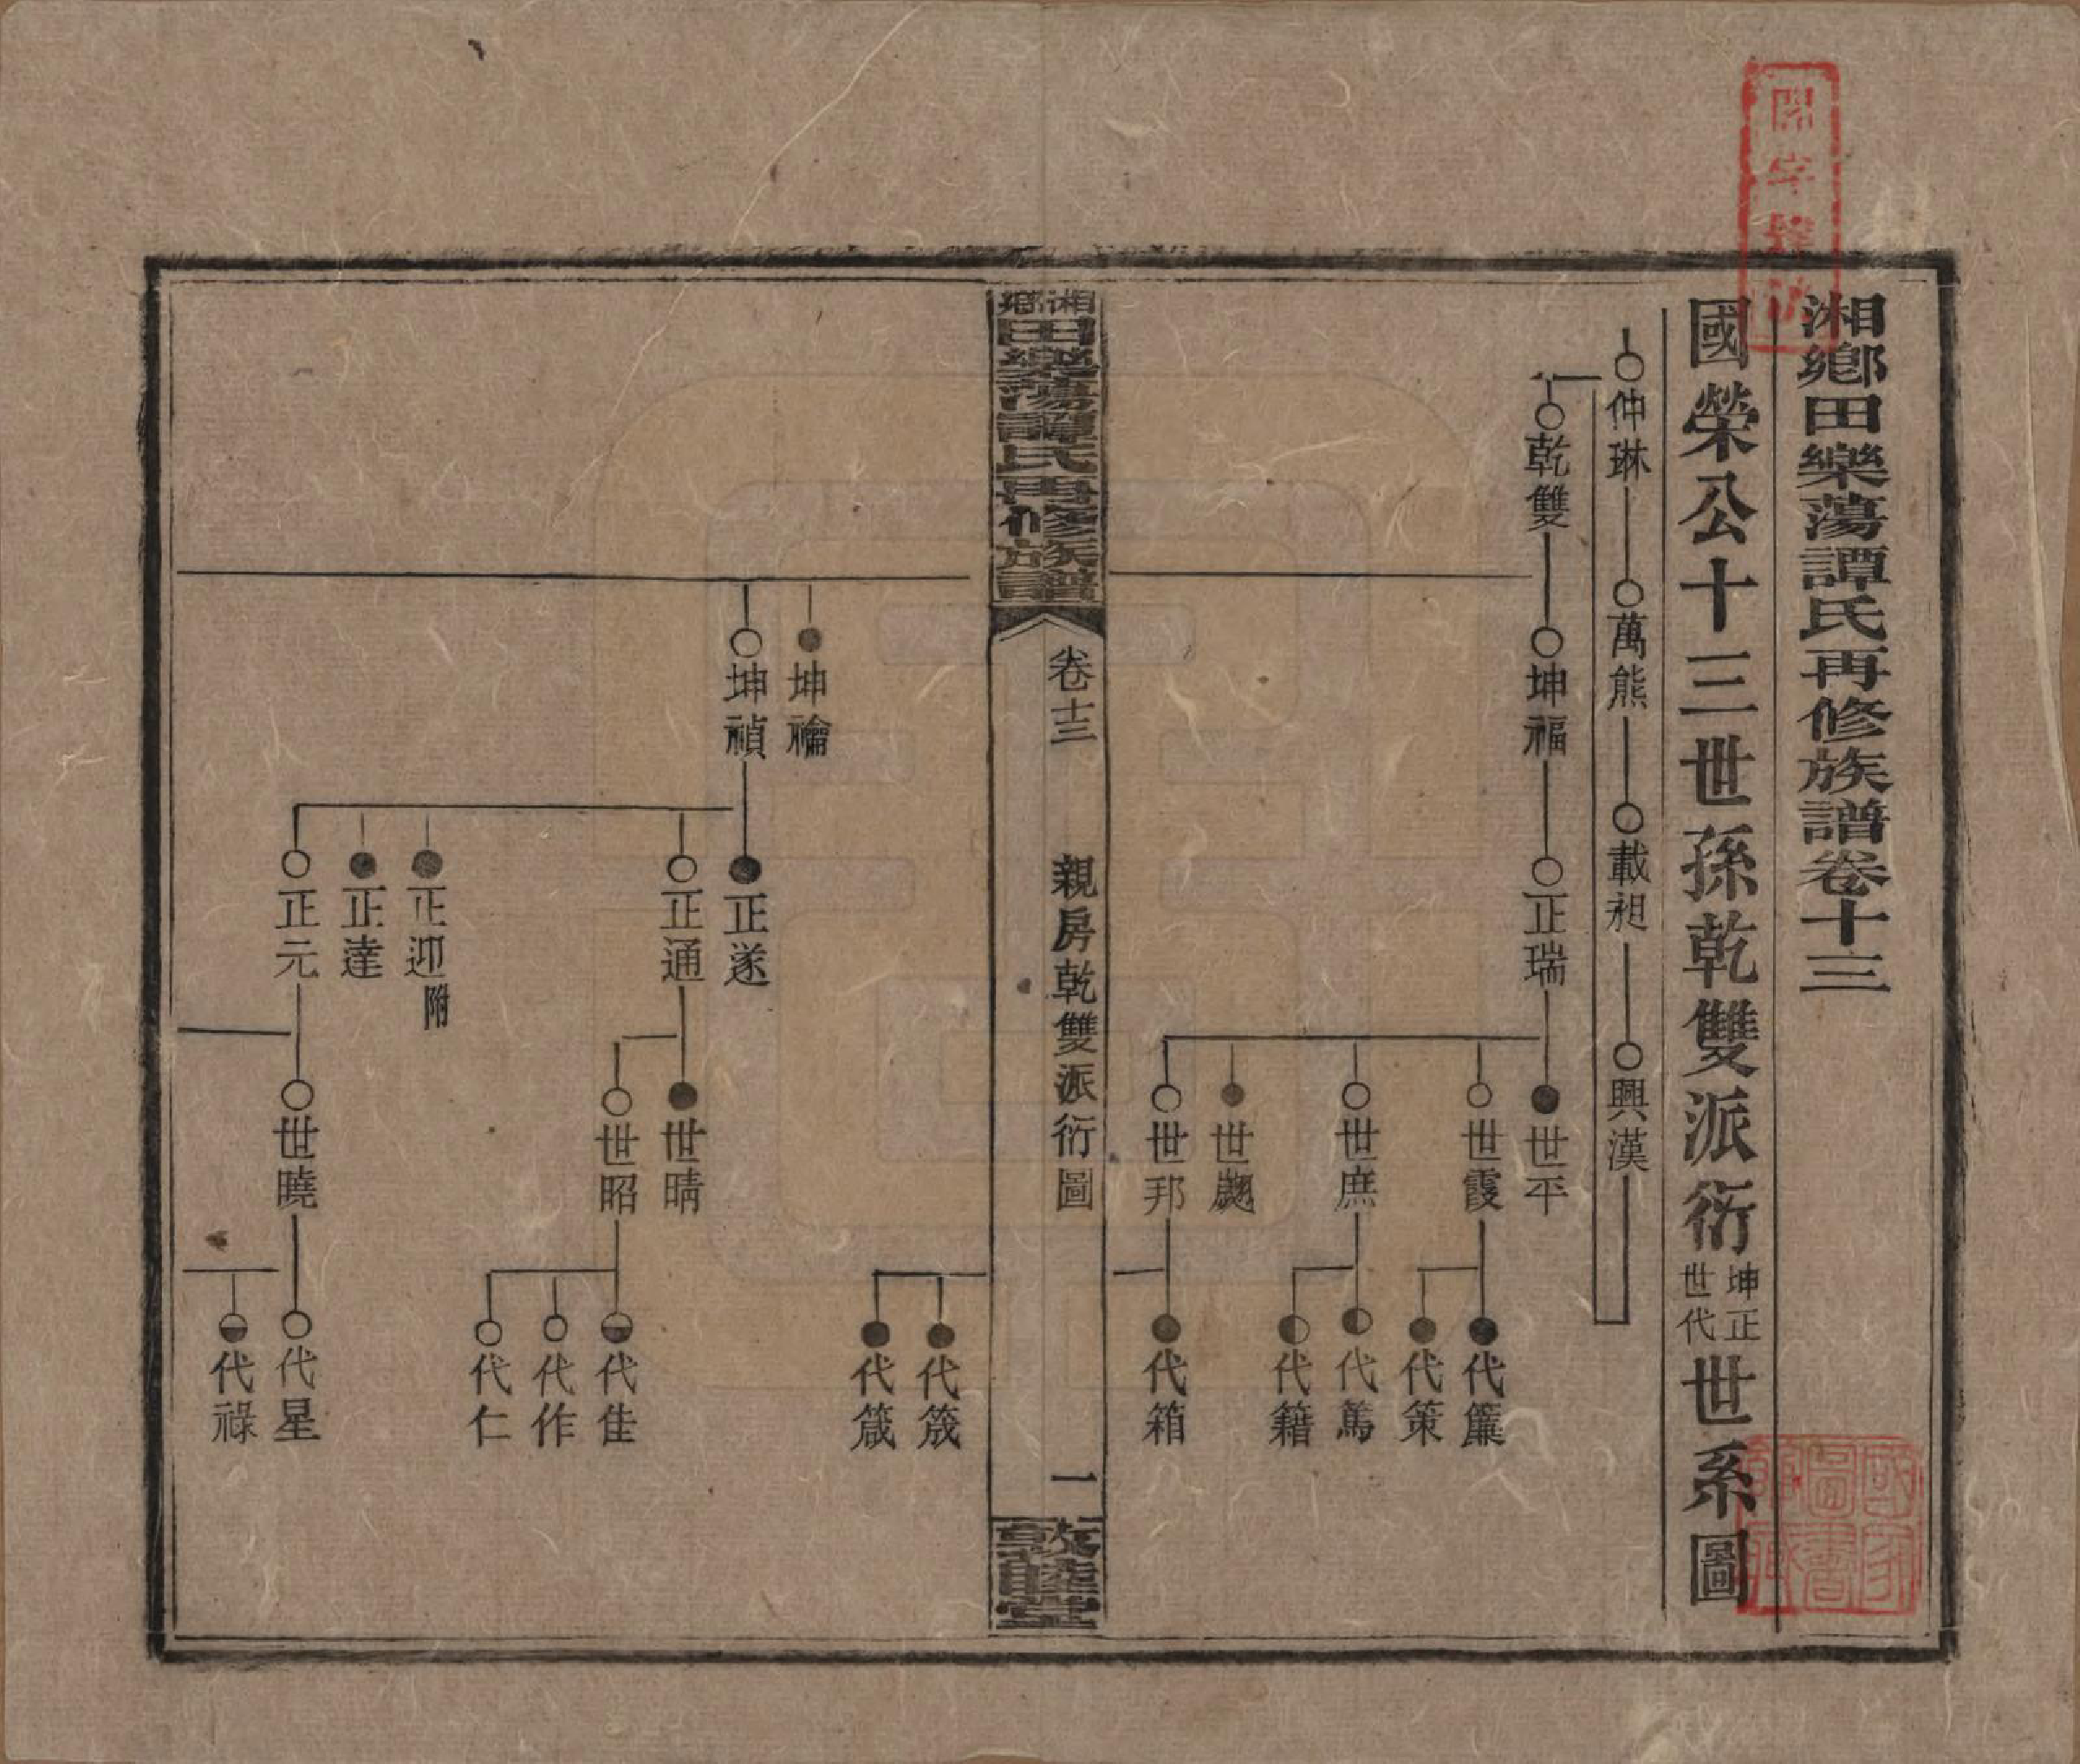 湘鄉田樂蕩譚氏再修族譜卷十三
國榮公十三世孫乾雙派衍坤正世代世系圖
仲琳
萬熊
載昶
興漢
乾雙
坤福
正瑞
世平
世霞
代簾
代策
世庶
代篤
代籍
世邦
代箱
湘鄉田樂蕩譚氏再修族譜
卷十三
親房乾雙派衍圖
一
敦睦堂
代筬
代箴
坤禬
坤禎
正遂
正通
世晴
世昭
代佳
代作
代仁
正迎附
正達
正元
世曉
代星
代祿